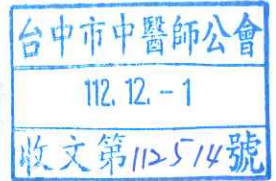 台中市中醫師公會
112. 12. - 1
收文第112514號